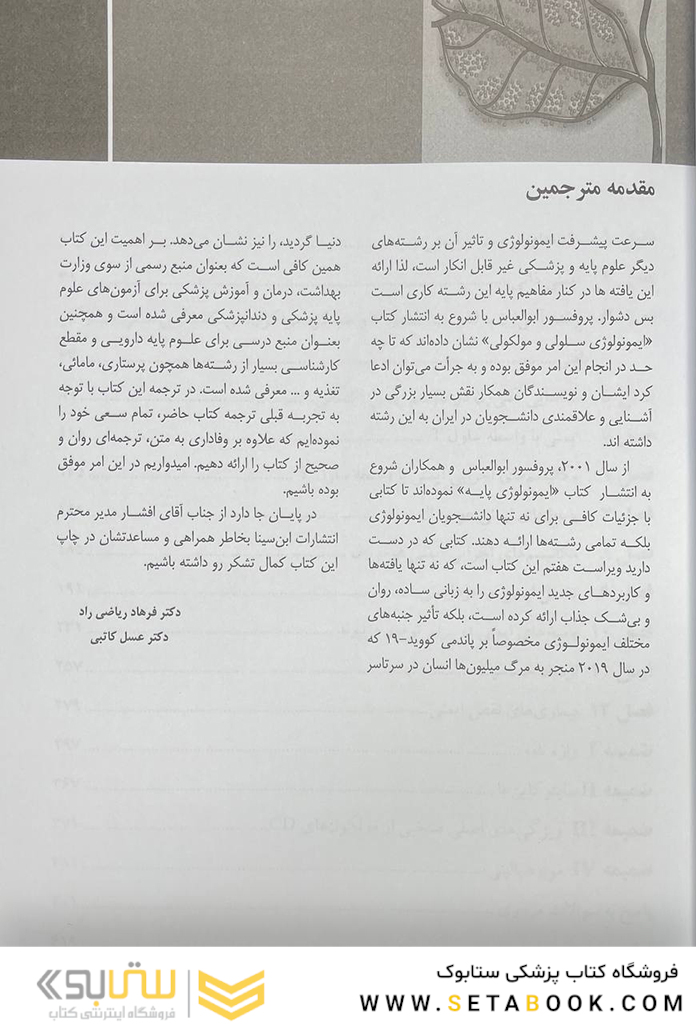 مقدمه مترجمین
سرعت پیشرفت ایمونولوژی و تاثیر آن بر رشته‌های
دیگر علوم پایه و پزشکی غیر قابل انکار است، لذا ارائه
این یافته ها در کنار مفاهیم پایه این رشته کاری است
بس دشوار. پروفسور ابوالعباس با شروع به انتشار کتاب
«ایمونولوژی سلولی و مولکولی» نشان داده‌اند که تا چه
حد در انجام این امر موفق بوده و به جرأت می‌توان ادعا
کرد ایشان و نویسندگان همکار نقش بسیار بزرگی در
آشنایی و علاقمندی دانشجویان در ایران به این رشته
داشته اند.
از سال ۲۰۰۱، پروفسور ابوالعباس و همکاران شروع
به انتشار کتاب «ایمونولوژی پایه» نموده‌اند تا کتابی
با جزئیات کافی برای نه تنها دانشجویان ایمونولوژی
بلکه تمامی رشته‌ها ارائه دهند. کتابی که در دست
دارید ویراست هفتم این کتاب است، که نه تنها یافته‌ها
و کاربردهای جدید ایمونولوژی را به زبانی ساده، روان
و بی‌شک جذاب ارائه کرده است، بلکه تأثیر جنبه‌های
مختلف ایمونولوژی مخصوصاً بر پاندمی کووید-۱۹ که
در سال ۲۰۱۹ منجر به مرگ میلیون‌ها انسان در سرتاسر
دنیا گردید، را نیز نشان می‌دهد. بر اهمیت این کتاب
همین کافی است که بعنوان منبع رسمی از سوی وزارت
بهداشت، درمان و آموزش پزشکی برای آزمون‌های علوم
پایه پزشکی و دندانپزشکی معرفی شده است و همچنین
بعنوان منبع درسی برای علوم پایه دارویی و مقطع
کارشناسی بسیار از رشته‌ها همچون پرستاری، مامائی،
تغذیه و ... معرفی شده است. در ترجمه این کتاب با توجه
به تجربه قبلی ترجمه کتاب حاضر، تمام سعی خود را
نموده‌ایم که علاوه بر وفاداری به متن، ترجمه‌ای روان و
صحیح از کتاب را ارائه دهیم. امیدواریم در این امر موفق
بوده باشیم.
در پایان جا دارد از جناب آقای افشار مدیر محترم
انتشارات ابن‌سینا بخاطر همراهی و مساعدتشان در چاپ
این کتاب کمال تشکر رو داشته باشیم.
دکتر فرهاد ریاضی راد
دکتر عسل کاتبی
فروشگاه کتاب پزشکی ستابوک
WWW.SETABOOK.COM
ستابوک
فروشگاه اینترنتی کتاب